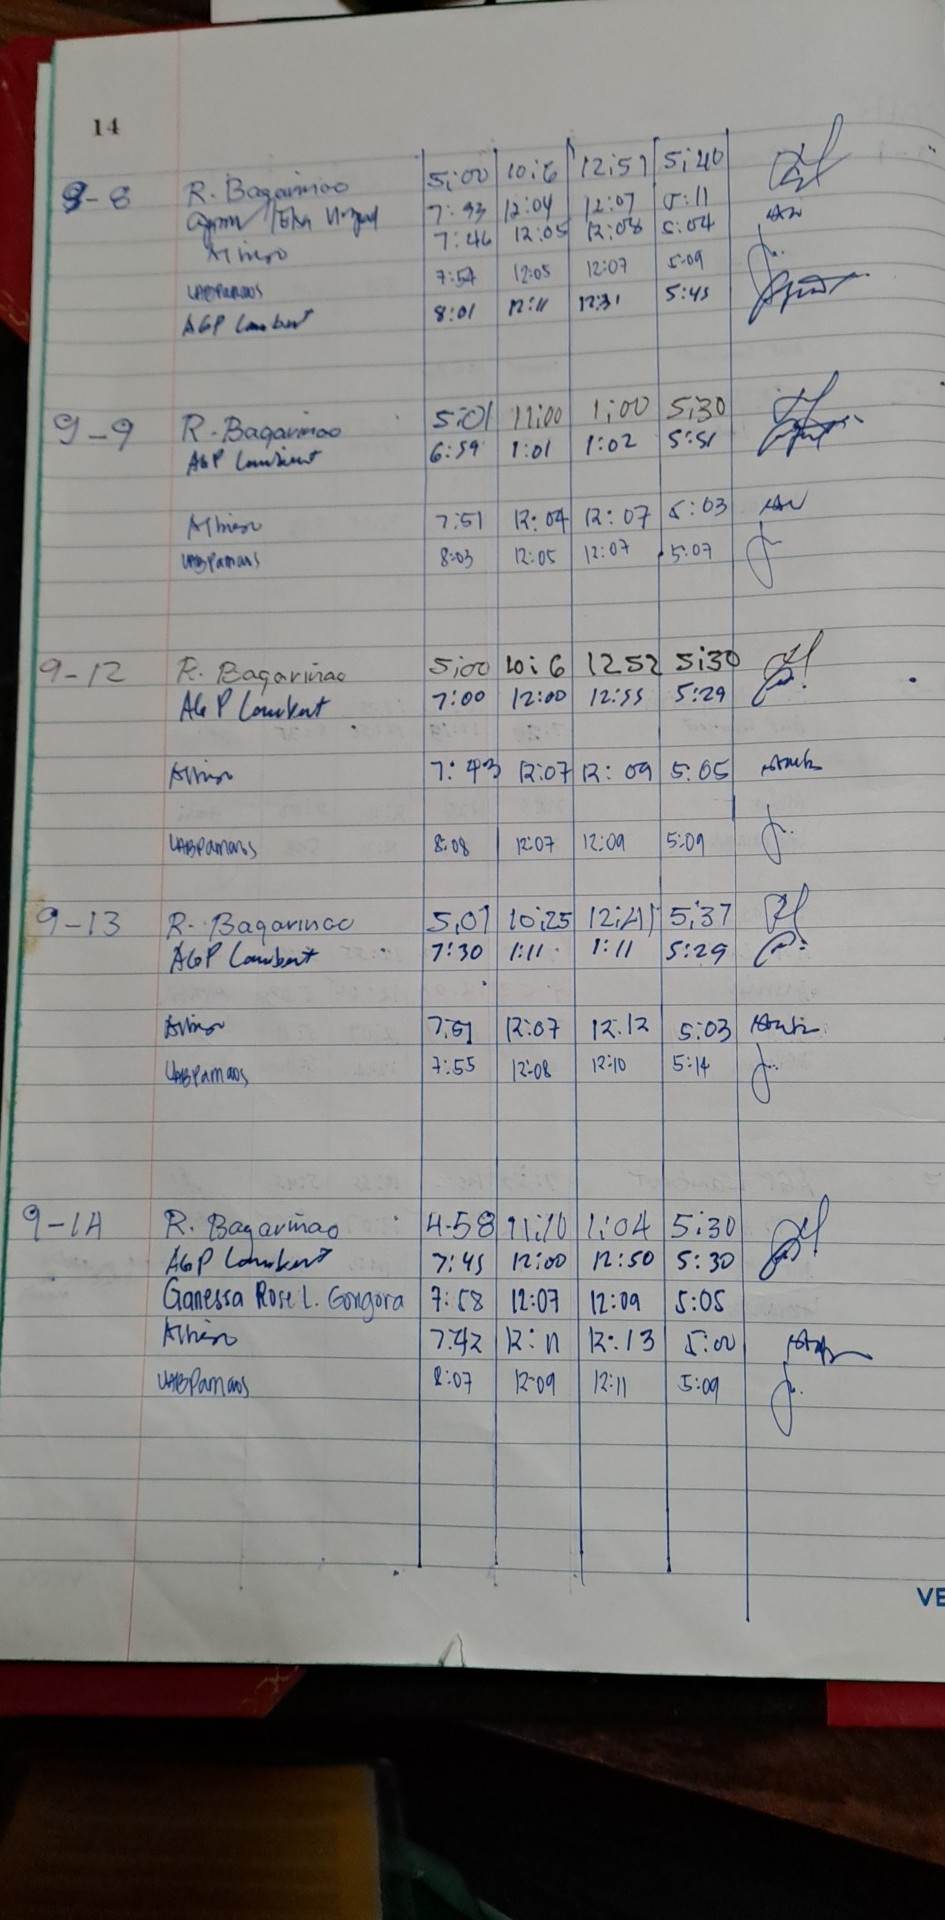 14
9-8 R. Bagarinao 5:00 10:6 12:57 5:40
7:43 12:04 12:07 5:11
7:46 12:05 12:08 5:04
UABPamaos 7:54 12:05 12:07 5:09
AGP Lambert 8:01 12:11 12:31 5:45
9-9 R. Bagarinao 5:01 11:00 1:00 5:30
AGP Lambert 6:59 1:01 1:02 5:51
7:51 12:04 12:07 5:03
UABPamaos 8:03 12:05 12:07 5:07
9-12 R. Bagarinao 5:00 10:6 1252 5:30
AGP Lambert 7:00 12:00 12:55 5:29
7:43 12:07 12:09 5:05
UABPamaos 8:08 12:07 12:09 5:09
9-13 R. Bagarinao 5:01 10:25 12:41 5:37
AGP Lambert 7:30 1:11 1:11 5:29
7:51 12:07 12:12 5:03
UABPamaos 7:55 12:08 12:10 5:14
9-14 R. Bagarinao 4:58 11:10 1:04 5:30
AGP Lambert 7:45 12:00 12:50 5:30
Ganessa Rose L. Gongora 7:58 12:07 12:09 5:05
7:42 12:11 12:13 5:00
UABPamaos 8:07 12:09 12:11 5:09
VE